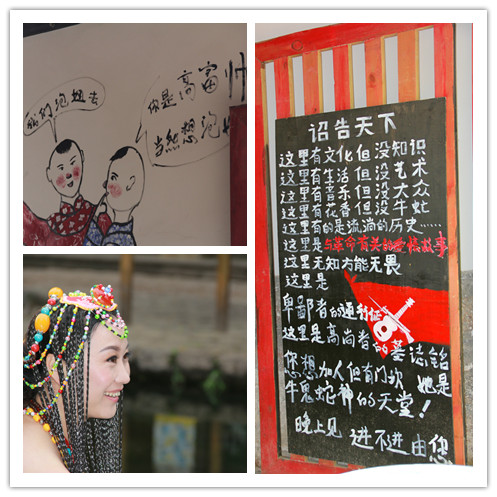 我们泡妞去
你是高富帅
当然想泡
诏告天下
这里有文化但没知识
这里有生活但没艺术
这里有音乐但没大众
这里有花香但没牛虻
这里有的是流淌的历史……
这里是与革命有关的爱情故事
这里无知方能无畏
这里是
卑鄙者的通行证
这里是高尚者的墓志铭
您想加入但有门坎 她是
牛鬼蛇神的天堂！
晚上见 进不进由您